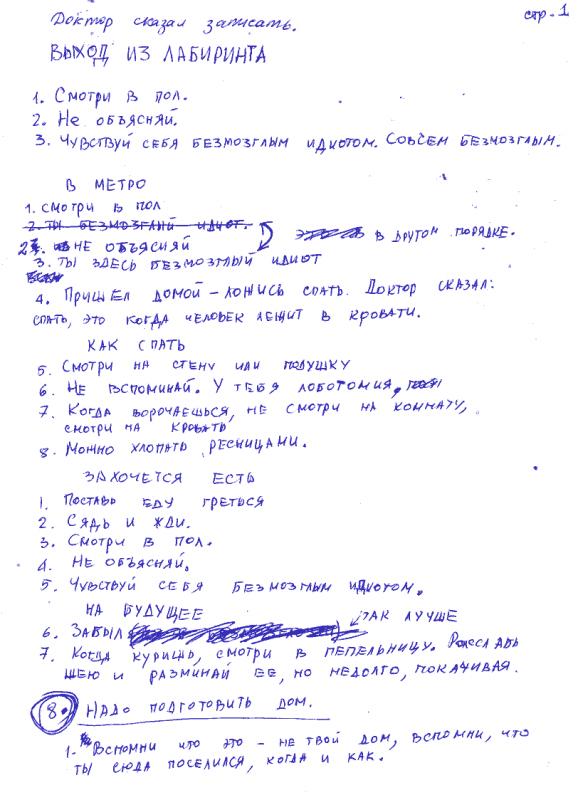 стр. 1
Доктор сказал записать.
ВЫХОД ИЗ ЛАБИРИНТА
1. Смотри в пол.
2. Не объясняй.
3. Чувствуй себя безмозглым идиотом. Совсем безмозглым.
В МЕТРО
1. Смотри в пол
2. ты безмозглый идиот.
2. не объясняй в другом порядке.
3. ты здесь безмозглый идиот
4. Пришел домой – ложись спать. Доктор сказал:
спать, это когда человек лежит в кровати.
КАК СПАТЬ
5. Смотри на стену или подушку
6. Не вспоминай. У тебя лоботомия,
7. Когда ворочаешься, не смотри на комнату,
смотри на кровать
8. Можно хлопать ресницами.
ЗАХОЧЕТСЯ ЕСТЬ
1. Поставь еду греться
2. Сядь и жди.
3. Смотри в пол.
4. Не объясняй.
5. Чувствуй себя безмозглым идиотом.
НА БУДУЩЕЕ
6. Забыл так лучше
7. Когда куришь, смотри в пепельницу. Расслабь
шею и разминай ее, но недолго, покачивая.
8. Надо подготовить дом.
1. Вспомни что это – не твой дом, вспомни, что
ты сюда поселился, когда и как.